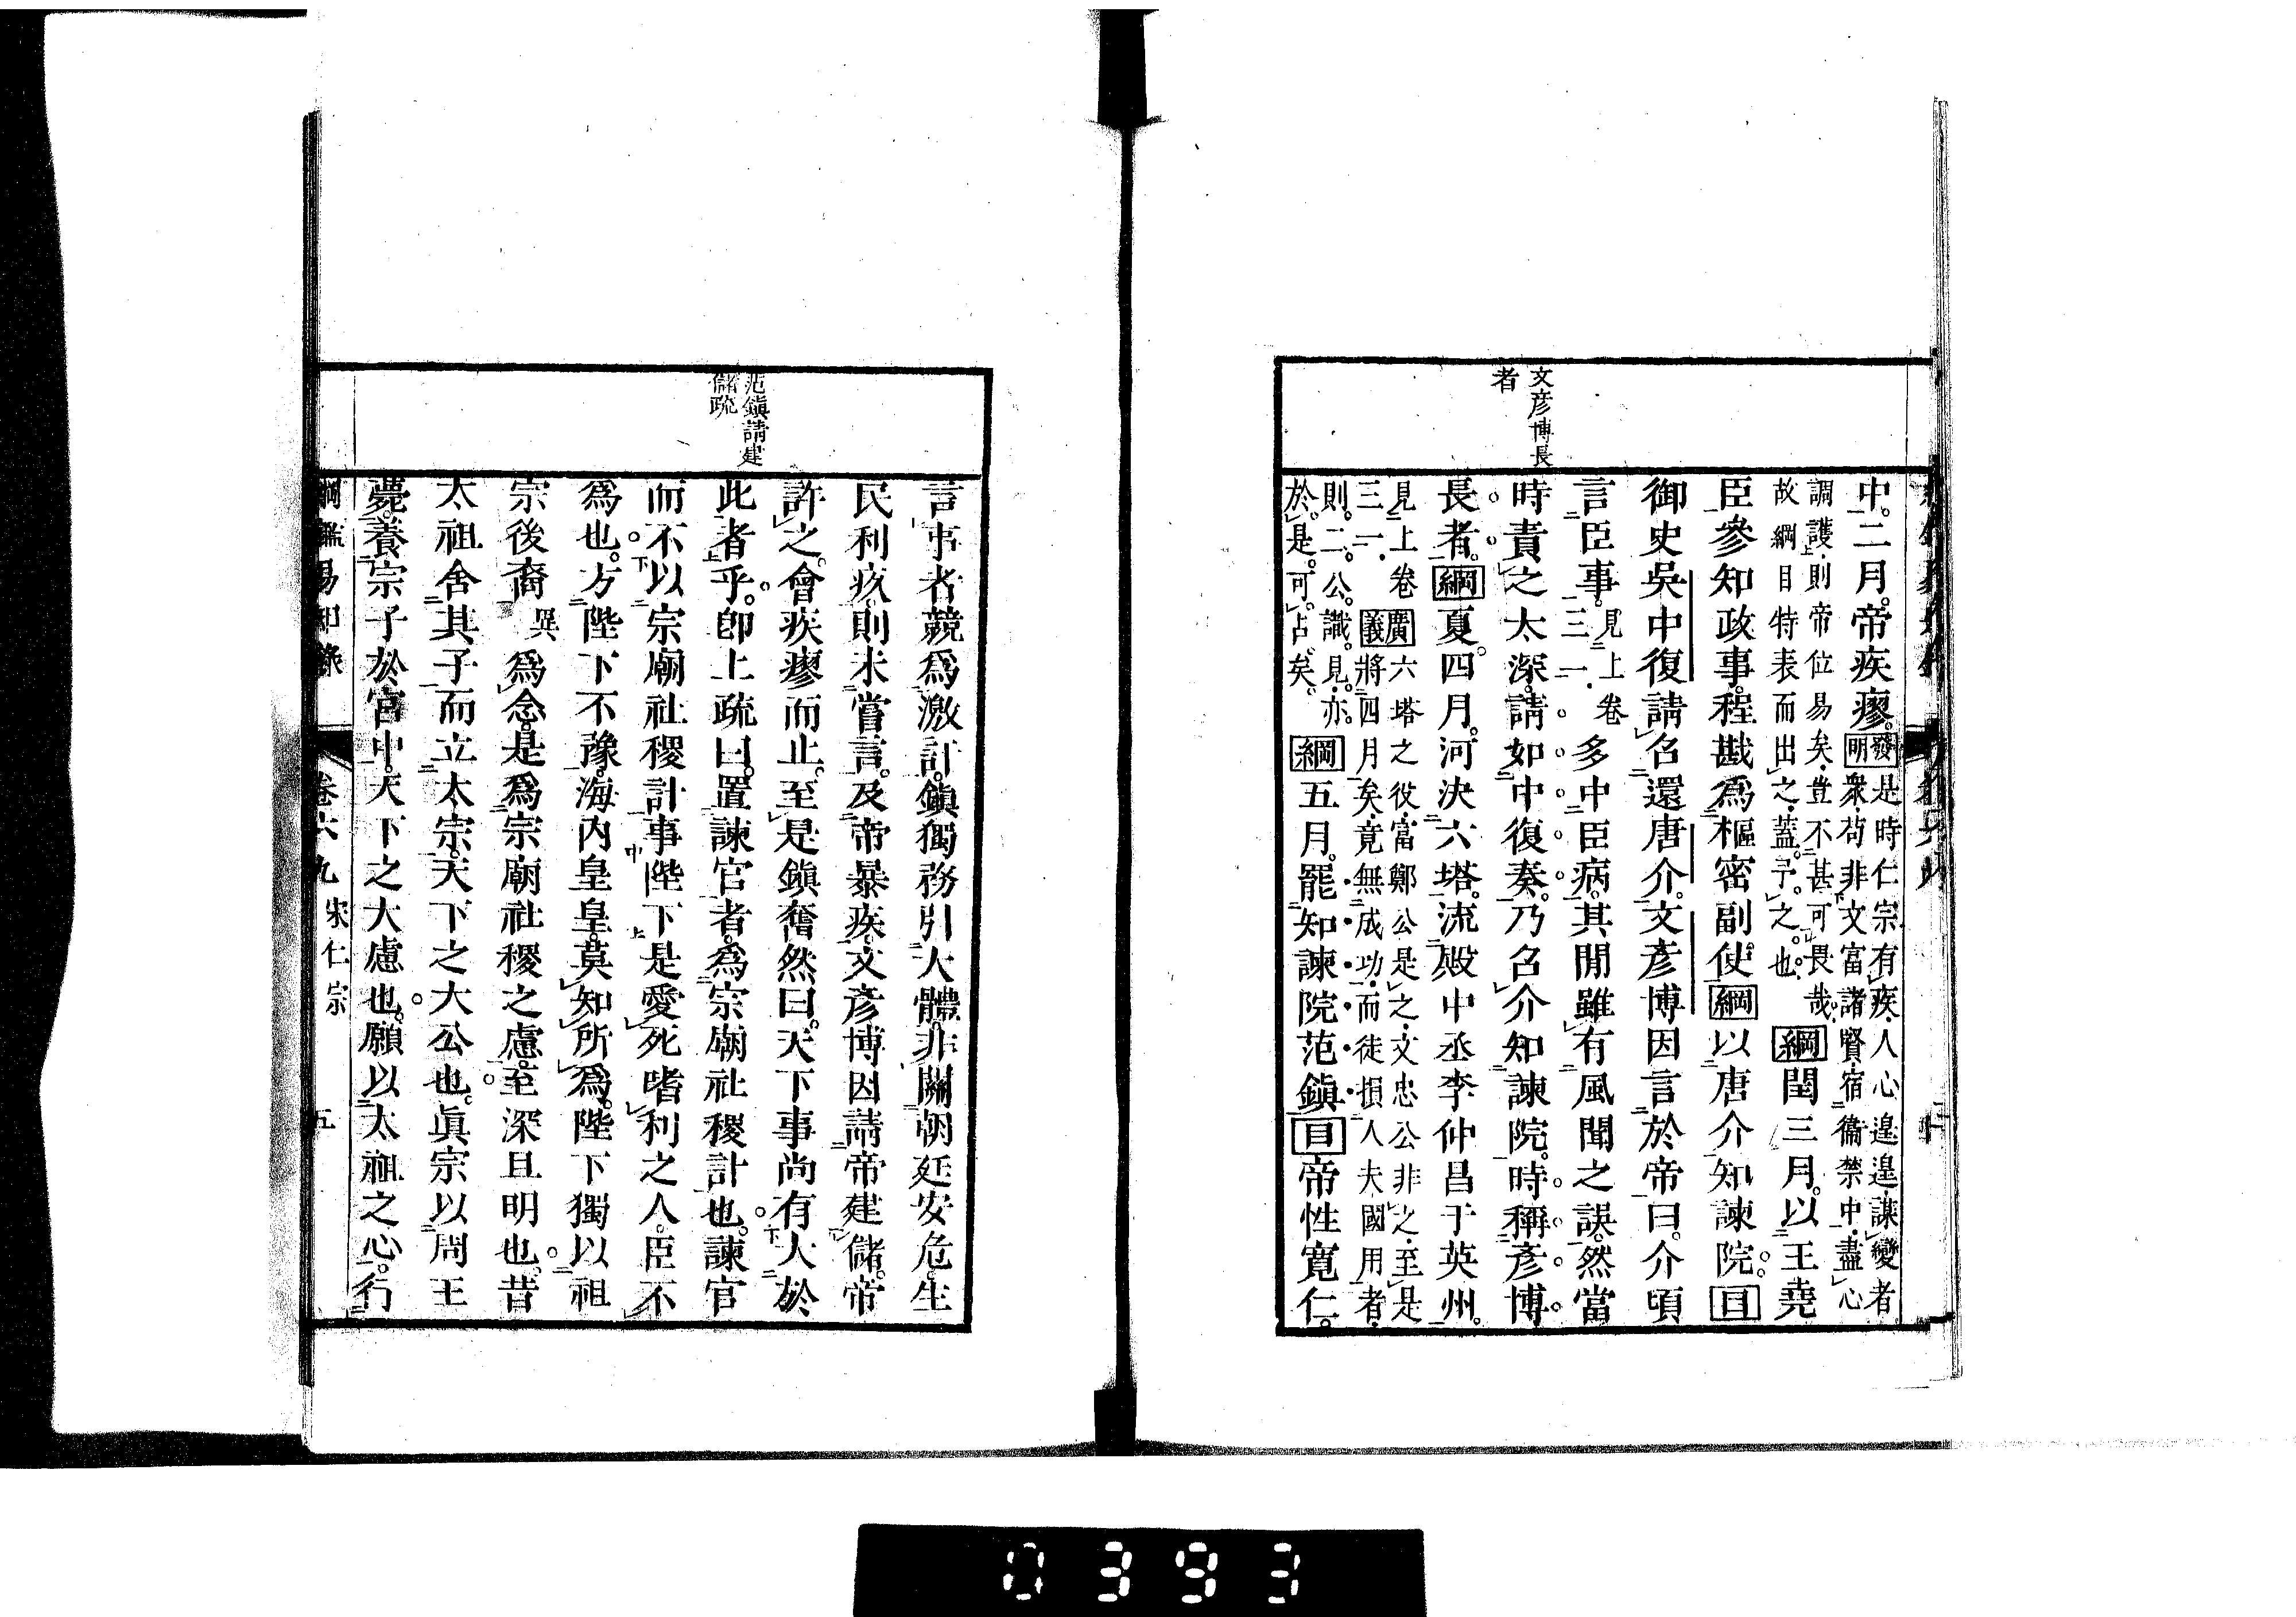 文彦博長
者
中。二月。帝疾瘳。發明是時仁宗有疾、人心遑遑、謀變者
衆、苟非文富諸賢、宿衞禁中、盡心
調護、則帝位易矣、豈不甚可畏哉、
故綱目特表而出之、蓋予之也。綱閏三月。以王堯
臣參知政事。程戡爲樞密副使。綱以唐介知諫院。目
御史吳中復請召還唐介。文彦博因言於帝曰。介頃
言臣事。見上卷
三一 多中臣病。其閒雖有風聞之誤。然當
時責之太深。請如中復奏。乃召介知諫院。時稱彦博
長者。綱夏四月。河決六塔。流殿中丞李仲昌于英州。
見上卷
三一 廣義六塔之役、富鄭公是之、文忠公非之、至是
將四月矣、竟無成功、而徒損人夫國用者、
則二公識見亦
於是可占矣。綱五月。罷知諫院范鎭目帝性寬仁。
范鎭請建
儲疏
言事者競爲激訐。鎭獨務引大體。非關朝廷安危。生
民利疚。則未嘗言。及帝暴疾。文彦博因請帝建儲。帝
許之。會疾瘳而止。至是鎭奮然曰。天下事尚有大於
此者乎。卽上疏曰。置諫官者。爲宗廟社稷計也。諫官
而不以宗廟社稷計事陛下。是愛死嗜利之人。臣不
爲也。方陛下不豫。海内皇皇。莫知所爲。陛下獨以祖
宗後裔異爲念。是爲宗廟社稷之慮。至深且明也。昔
太祖舍其子而立太宗。天下之大公也。眞宗以周王
薨。養宗子於宮中。天下之大慮也。願以太祖之心。行
綱鑑易知錄 卷六九 宋仁宗 五
0393